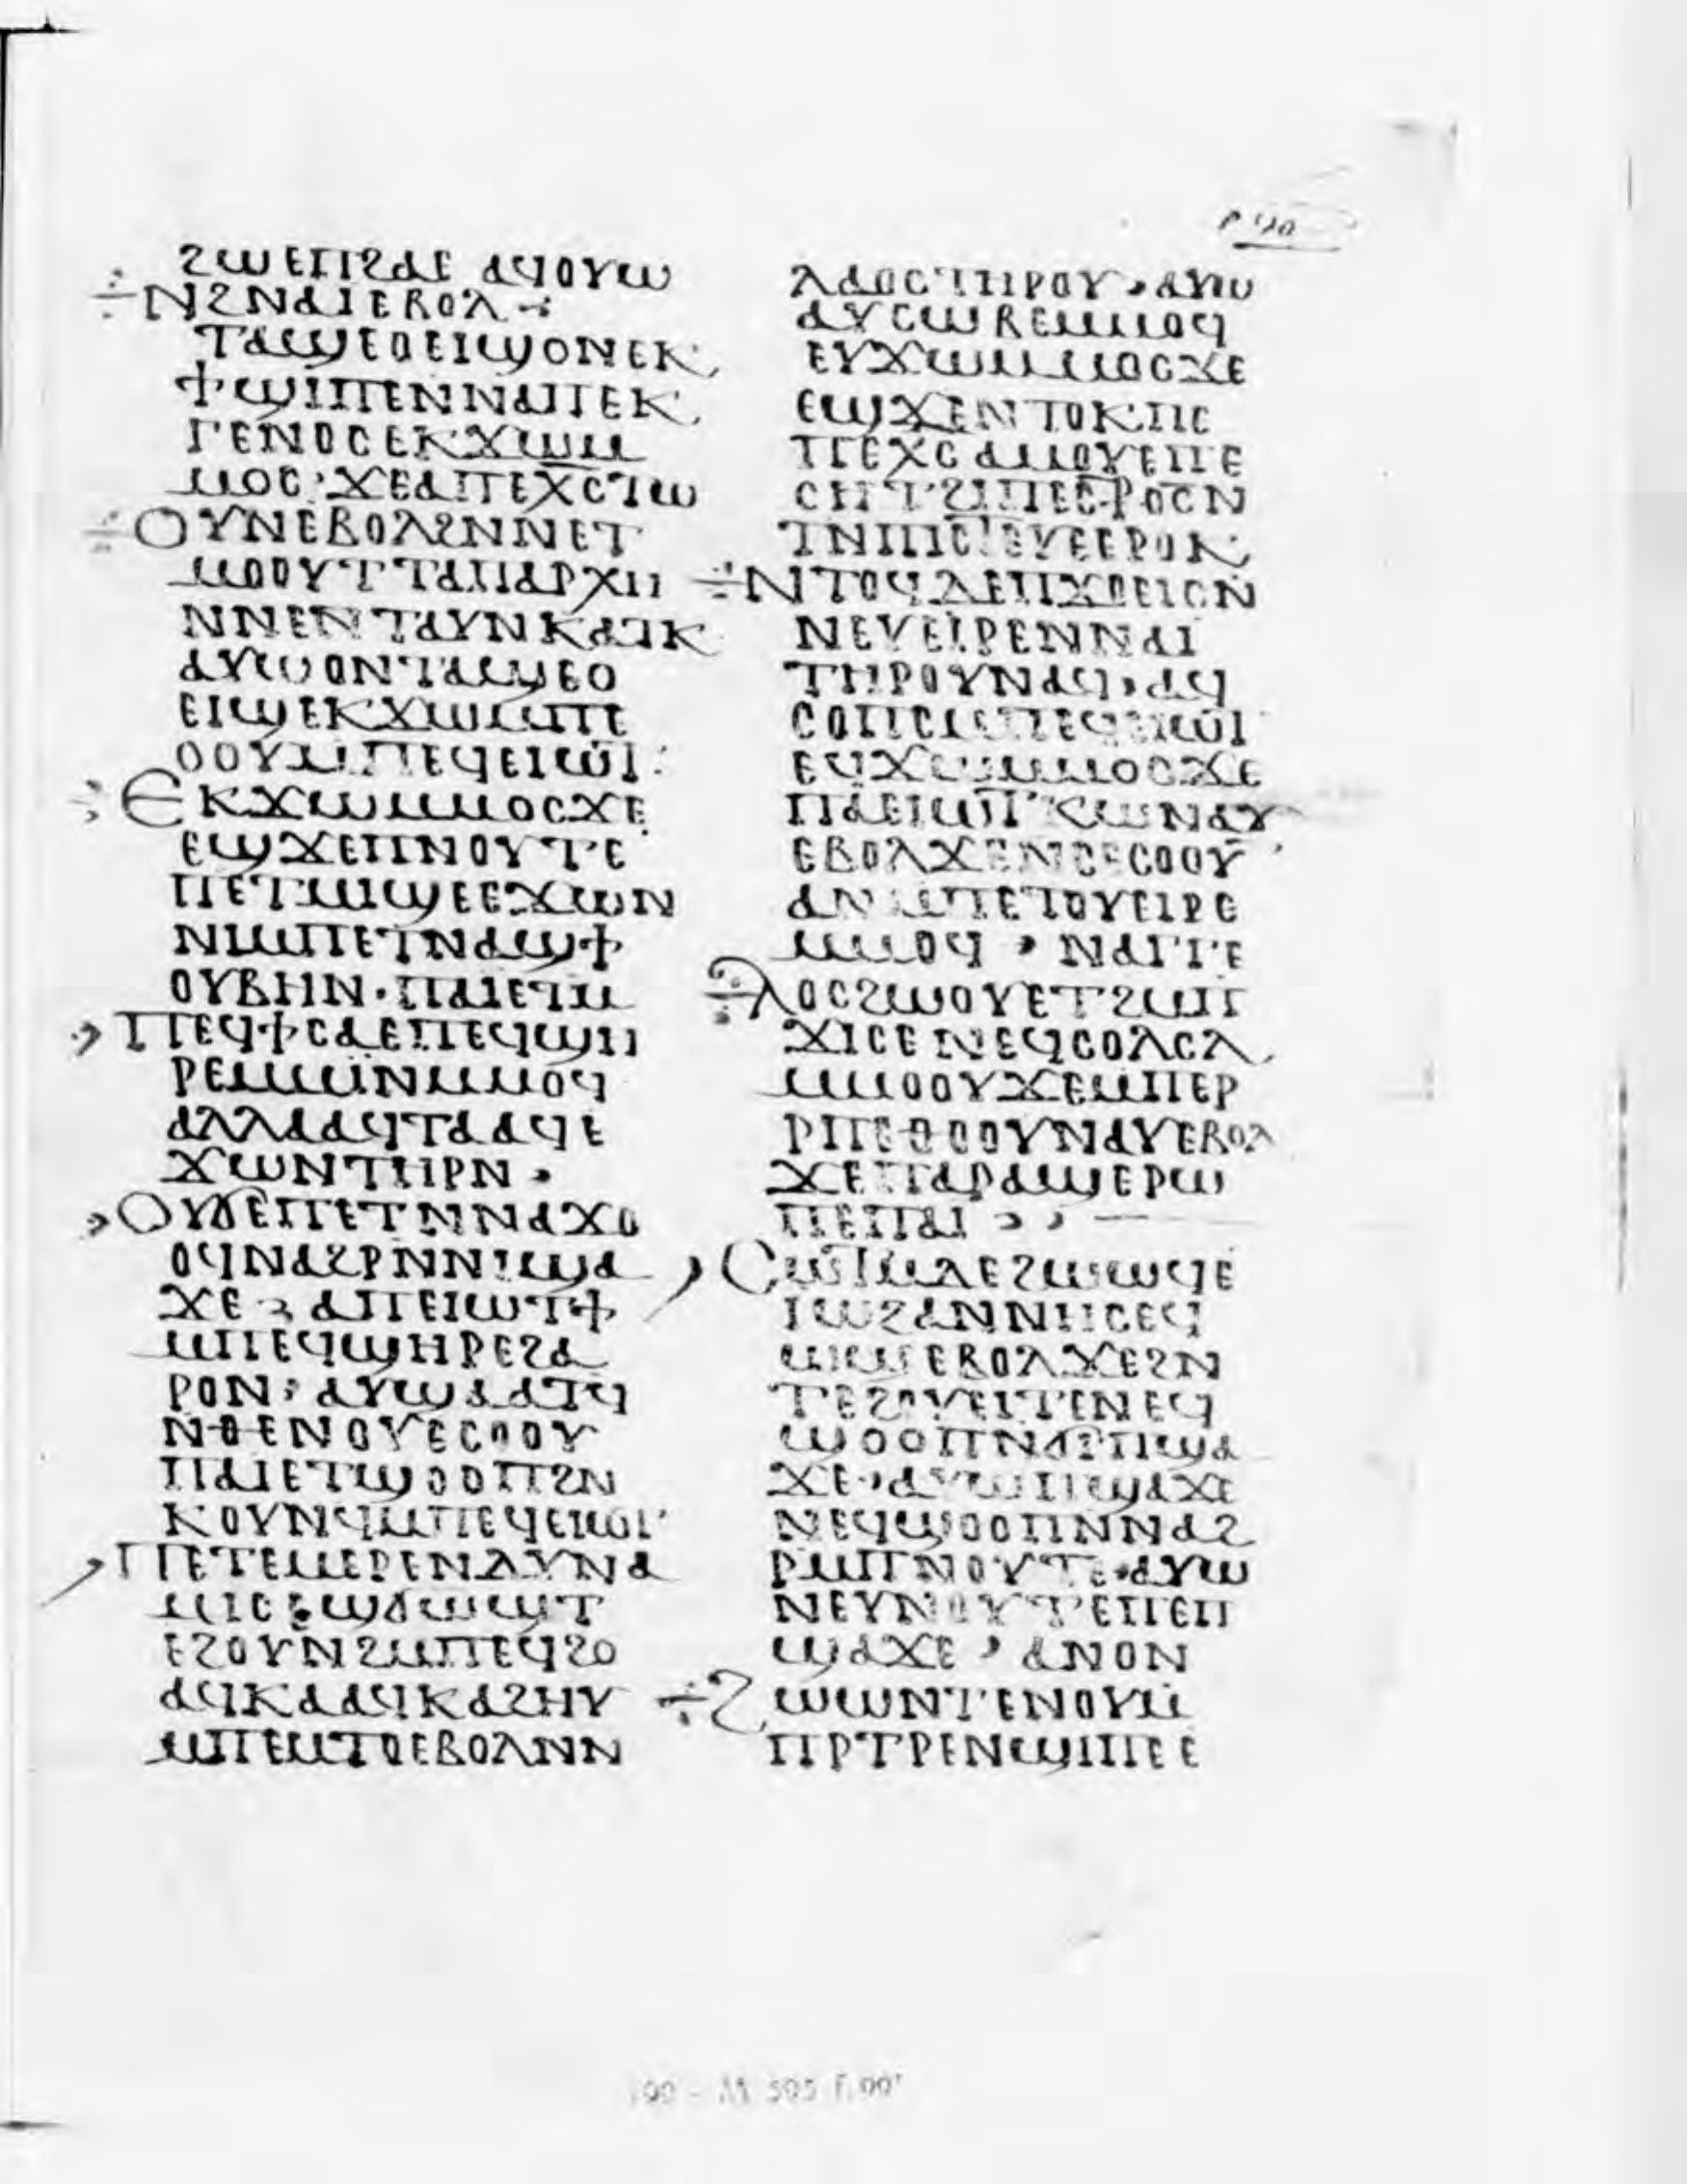 ϩⲱⲉⲡϩⲁⲉ ⲁϥⲟⲩⲱ
ⲛϩⲛⲁⲓⲉⲃⲟⲗ
ⲧⲁϣⲉⲟⲉⲓϣⲟⲛⲉⲕ
ϯϣⲓⲡⲉⲛⲛⲁⲡⲉⲕ
ⲅⲉⲛⲟⲥⲉⲕϫⲱⲙ
ⲙⲟⲥ·ϫⲉⲁⲡⲉⲭⲥⲧⲱ
ⲟⲩⲛⲉⲃⲟⲗϩⲛⲛⲉⲧ
ⲙⲟⲟⲩⲧⲧⲁⲡⲁⲣⲭⲏ
ⲛⲛⲉⲛⲧⲁⲩⲛⲕⲁⲧⲕ
ⲁⲩⲱⲟⲛⲧⲁϣⲉⲟ
ⲉⲓϣⲉⲕϫⲱⲙⲡⲉ
ⲟⲟⲩⲙⲡⲉϥⲉⲓⲱⲧ·
ⲉⲕϫⲱⲙⲙⲟⲥϫⲉ
ⲉϣϫⲉⲡⲛⲟⲩⲧⲉ
ⲡⲉⲧⲙⲓϣⲉⲉϫⲱⲛ
ⲛⲓⲙⲡⲉⲧⲛⲁϣϯ
ⲟⲩⲃⲏⲛ·ⲡⲁⲓⲉⲧⲙ
ⲡⲉϥϯⲥⲁⲉⲡⲉϥϣⲏ
ⲣⲉⲙⲙⲓⲛⲙⲙⲟϥ
ⲁⲗⲗⲁⲁϥⲧⲁⲁϥⲉ
ϫⲱⲛⲧⲏⲣⲛ·
ⲟⲩⲇⲉⲡⲉⲧⲛⲛⲁϫⲟ
ⲟϥⲛⲁϩⲣⲛⲛⲓϣⲁ
ϫⲉ· ⲁⲡⲉⲓⲱⲧϯ
ⲙⲡⲉϥϣⲏⲣⲉϩⲁ
ⲣⲟⲛ·ⲁⲩⲱⲁⲁⲧϥ
ⲛⲑⲉⲛⲟⲩⲉⲥⲟⲟⲩ
ⲡⲁⲓⲉⲧϣⲟⲟⲡϩⲛ
ⲕⲟⲩⲛϥⲙⲡⲉϥⲉⲓⲱⲧ·
ⲡⲉⲧⲉⲙⲉⲣⲉⲛⲗⲁⲩⲛⲁ
ⲉϩⲟⲩⲛϩⲙⲡⲉϥϩⲟ
ⲁϥⲕⲁⲁϥⲕⲁϩⲏⲩ
ⲙⲡⲉⲙⲧⲟⲉⲃⲟⲗⲛⲛ
ⲗⲁⲟⲥⲧⲏⲣⲟⲩ·ⲁⲩⲱ
ⲁⲩⲥⲱⲃⲉⲙⲙⲟϥ
ⲉⲩϫⲱⲙⲙⲟⲥϫⲉ
ⲉϣϫⲉⲛⲧⲟⲕⲡⲉ
ⲡⲉⲭⲥⲁⲙⲟⲩⲉⲡⲉ
ⲥⲏⲧϩⲙⲡⲉⲥⲣⲟⲥⲛ
ⲧⲛⲡⲓⲥⲧⲉⲩⲉⲉⲣⲟⲕ
ⲛⲧⲟϥⲇⲉⲡϫⲟⲉⲓⲥⲛ
ⲛⲉⲩⲉⲓⲣⲉⲛⲛⲁⲓ
ⲧⲏⲣⲟⲩⲛⲁϥ·ⲁϥ
ⲥⲟⲡⲥⲙⲡⲉϥⲉⲓⲱⲧ
ⲉϥϫⲱⲙⲙⲟⲥϫⲉ
ⲡⲁⲉⲓⲱⲧ ⲕⲱⲛⲁⲩ
ⲉⲃⲟⲗϫⲉⲛⲥⲉⲥⲟⲟⲩ
ⲁⲛⲙⲡⲉⲧⲟⲩⲉⲓⲣⲉ
ⲙⲙⲟϥ·ⲛⲁⲅⲅⲉ
ⲗⲟⲥϩⲱⲟⲩⲉⲧϩⲙⲡ
ϫⲓⲥⲉⲛⲉϥⲥⲟⲗⲥⲗ
ⲙⲙⲟⲟⲩϫⲉⲙⲡⲉⲣ
ⲣⲡⲉⲑⲟⲟⲩⲛⲁⲩⲉⲃⲟⲗ
ϫⲉⲡⲁⲣⲁϣⲉⲣⲱ
ⲡⲉⲡⲁⲓ
ⲥⲱⲧⲙⲇⲉϩⲱⲱϥⲉ
ⲓⲱϩⲁⲛⲛⲏⲥⲉϥ
ⲱϣⲉⲃⲟⲗϫⲉϩⲛ
ⲧⲉϩⲟⲩⲉⲓⲧⲉⲛⲉϥ
ϣⲟⲟⲡⲛϭⲓⲡϣⲁ
ϫⲉ·ⲁⲩⲱⲡϣⲁϫⲉ
ⲛⲉϥϣⲟⲟⲡⲛⲛⲁϩ
ⲣⲙⲡⲛⲟⲩⲧⲉ·ⲁⲩⲱ
ⲛⲉⲩⲛⲟⲩⲧⲉⲡⲉⲡ
ϣⲁϫⲉ·ⲁⲛⲟⲛ
ϩⲱⲱⲛⲧⲉⲛⲟⲩⲙ
ⲡⲣⲧⲣⲉⲛϣⲓⲡⲉⲉ